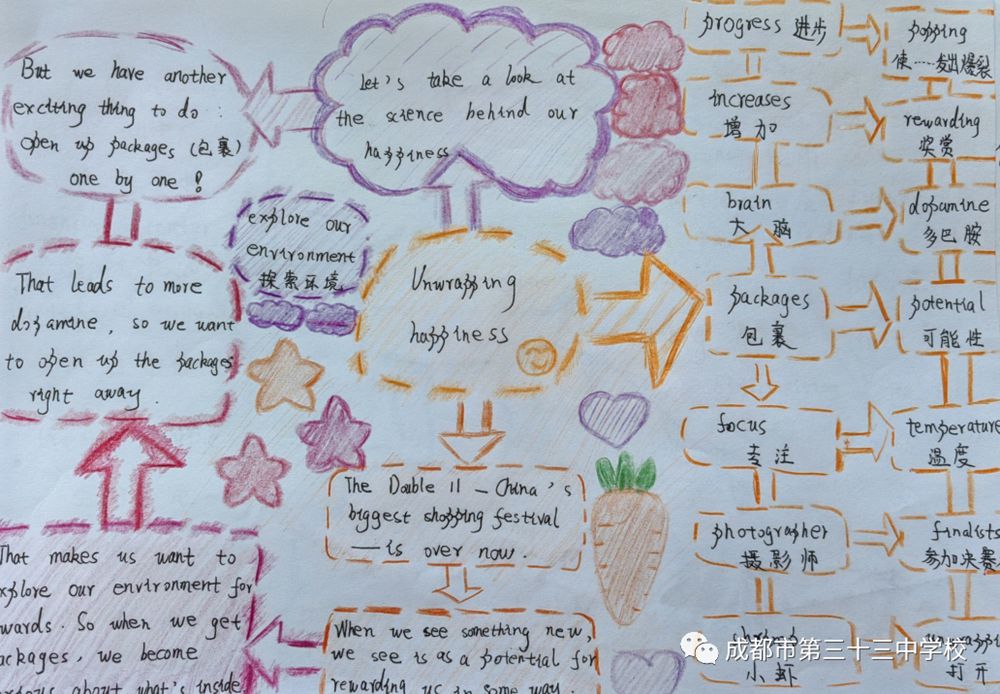 But we have another
exciting thing to do :
open up packages (包裹)
one by one !
Let's take a look at
the science behind our
happiness
explore our
environment
探索环境
Unwrapping
happiness
That leads to more
dopamine, so we want
to open up the packages
right away.
The Double 11 — China's
biggest shopping festival
— is over now.
When we see something new,
we see is as a potential for
rewarding us in some way.
That makes us want to
explore our environment for
wards. So when we get
ackages, we become
about what's inside
progress 进步
popping
使……发出爆裂
increases
增加
rewarding
奖赏
brain
大脑
dopamine
多巴胺
packages
包裹
potential
可能性
focus
专注
temperature
温度
photographer
摄影师
finalists
参加决赛
小虾
打开
成都市第三十三中学校